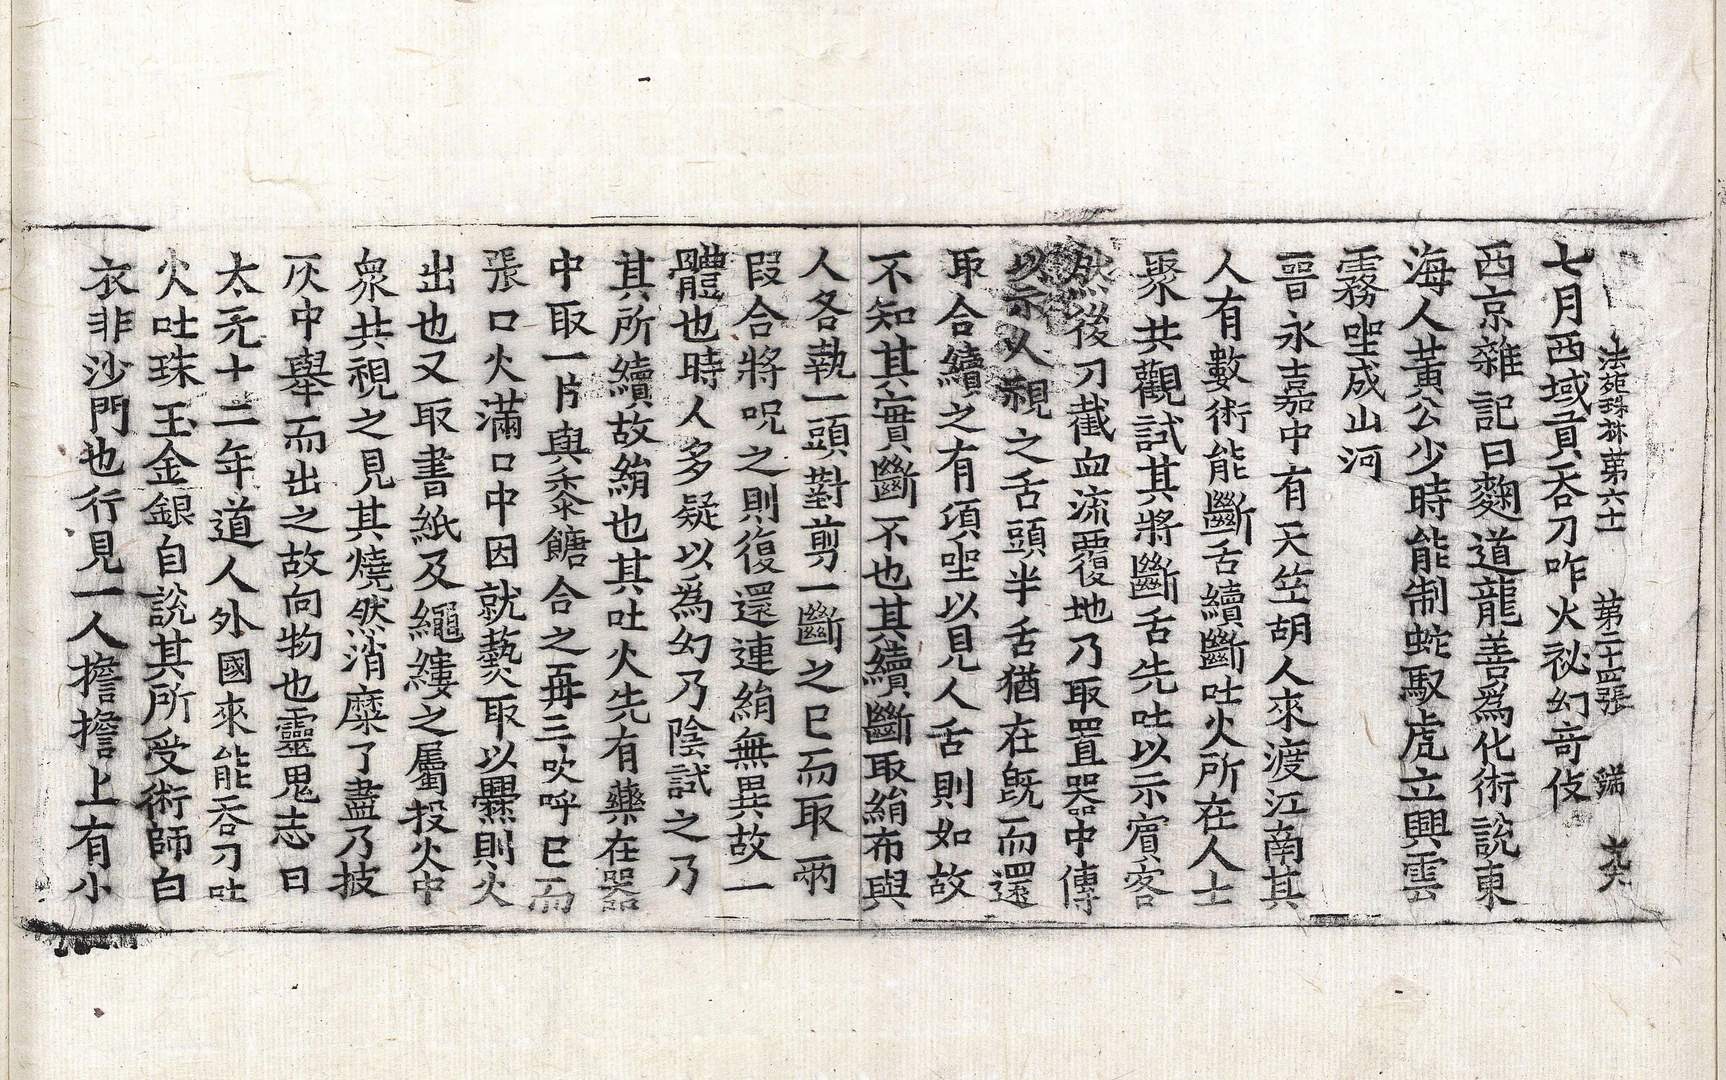 法苑珠林第六十　第二十四張
七月西域貢吞刀咋火祕幻奇伎
西京雜記曰麴道龍善為化術說東
海人黃公少時能制蛇馭虎立興雲
霧坐成山河
晉永嘉中有天竺胡人來渡江南其
人有數術能斷舌續斷吐火所在人士
聚共觀試其將斷舌先吐以示賓客
然後刀截血流覆地乃取置器中傳
以示人視之舌頭半舌猶在旣而還
取合續之有頃坐以見人舌則如故
不知其實斷不也其續斷取絹布與
人各執一頭對剪一斷之已而取兩
段合將呪之則復還連絹無異故一
體也時人多疑以為幻乃陰試之乃
其所續故絹也其吐火先有藥在器
中取一片與黍餹合之再三吹呼已而
張口火滿口中因就爇取以爨則火
出也又取書紙及繩縷之屬投火中
衆共視之見其燒然消糜了盡乃披
灰中舉而出之故向物也靈鬼志曰
太元十二年道人外國來能吞刀吐
火吐珠玉金銀自說其所受術師白
衣非沙門也行見一人擔擔上有小